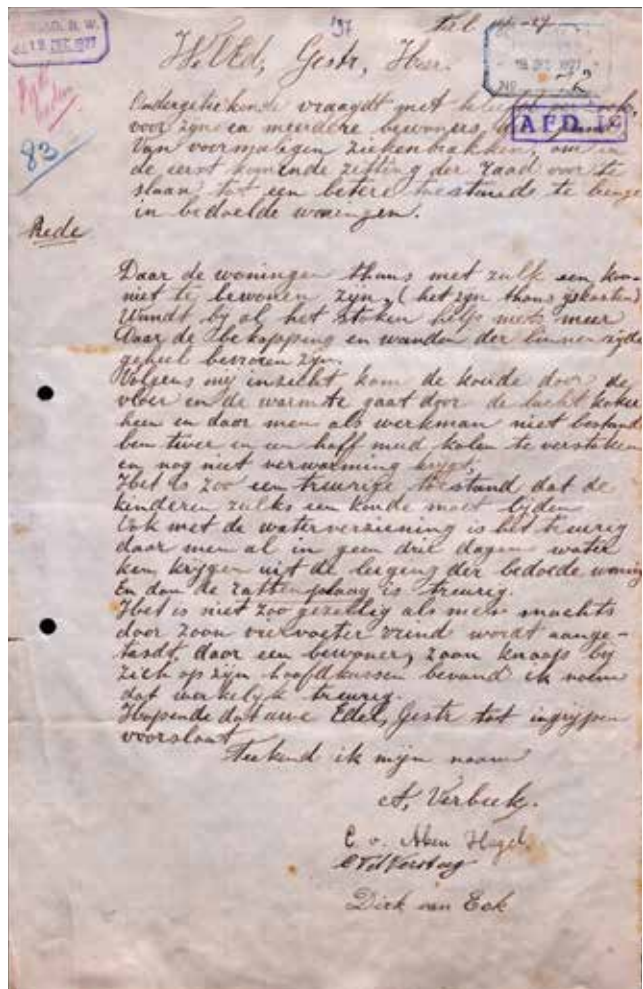 '37
19 DEC. 1927
W. Ed, Gestr, Heer.
AFD. IC
83
Ondergeteekende vraagdt met beleefd
voor zijne en meerdere bewoners,
Van voormaligen ziekenbrakken, om in
de eerst komende zitting der raad voor te
slaan tot een betere toestands te
in bedoelde woningen.
Rede
Daar de woningen thans met zulk een
niet te bewonen zijn, (het zijn thans yskasten)
Wandt by al het stoken helpt niets meer
Daar de bekapping en wanden der binnen zijde
geheel bevroren zijn.
Volgens my inzicht kom de koude door de
vloer en de warmte gaat door de lucht koker
heen en daar men als werkman niet bestand
ben twee en een half mud kolen te verstoken
en nog niet verwarming krygt.
Het is zoo een treurige toestand dat de
kinderen zulks een koude moet lyden
Ook met de waterverziening is het treurig
daar men al in geen drie dagen water
ken krygen uit de der bedoede woning
En dan de rattenplaag is treurig.
Het is niet zoo gezellig als men snachts
door zoon viervoeter vrind wordt aange-
tasdt, daar een bewoner, zoon knaap by
zich op zijn hoofdkussen bevand ik noem
dat werkelyk treurig.
Hopende dat uwe Edel, Gestr tot ingrijpen
voorslaat
Teekend ik mijn naam
A, Verbeek.
C. v. Aken
Dirk van Eck